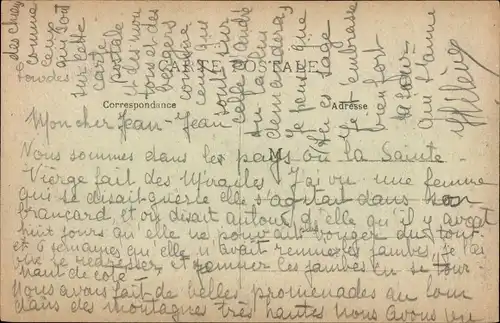 CARTE POSTALE
Correspondance
Adresse
Mon cher Jean-Jean
Nous sommes dans les pays où la Sainte
Vierge fait des Miracles J'ai vu une femme
qui se disait guérie elle s'agitait dans son
brancard, et on disait autour d'elle qu'il y avait
huit jours qu'elle ne pouvait bouger du tout
et 6 semaines qu'elle n'avait remué les jambes, je l'ai
vue se redresser et remuer les jambes en se tour-
nant de coté
Nous avons fait de belles promenades au loin
dans des montagnes très hautes nous avons vu
des
comme
ceux
qui sont
sur cette
carte
postale
et des mou
tons et des
bergers
comme
ceux qui
sont sur
celle d'André
tu la lui
demanderas
Je pense que
tu es sage
Je t'embrasse
bien fort
ta sœur
qui t'aime